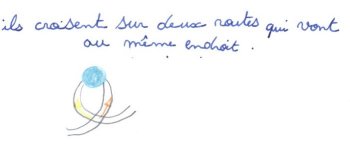 ils croisent sur deux routes qui vont
au même endroit.